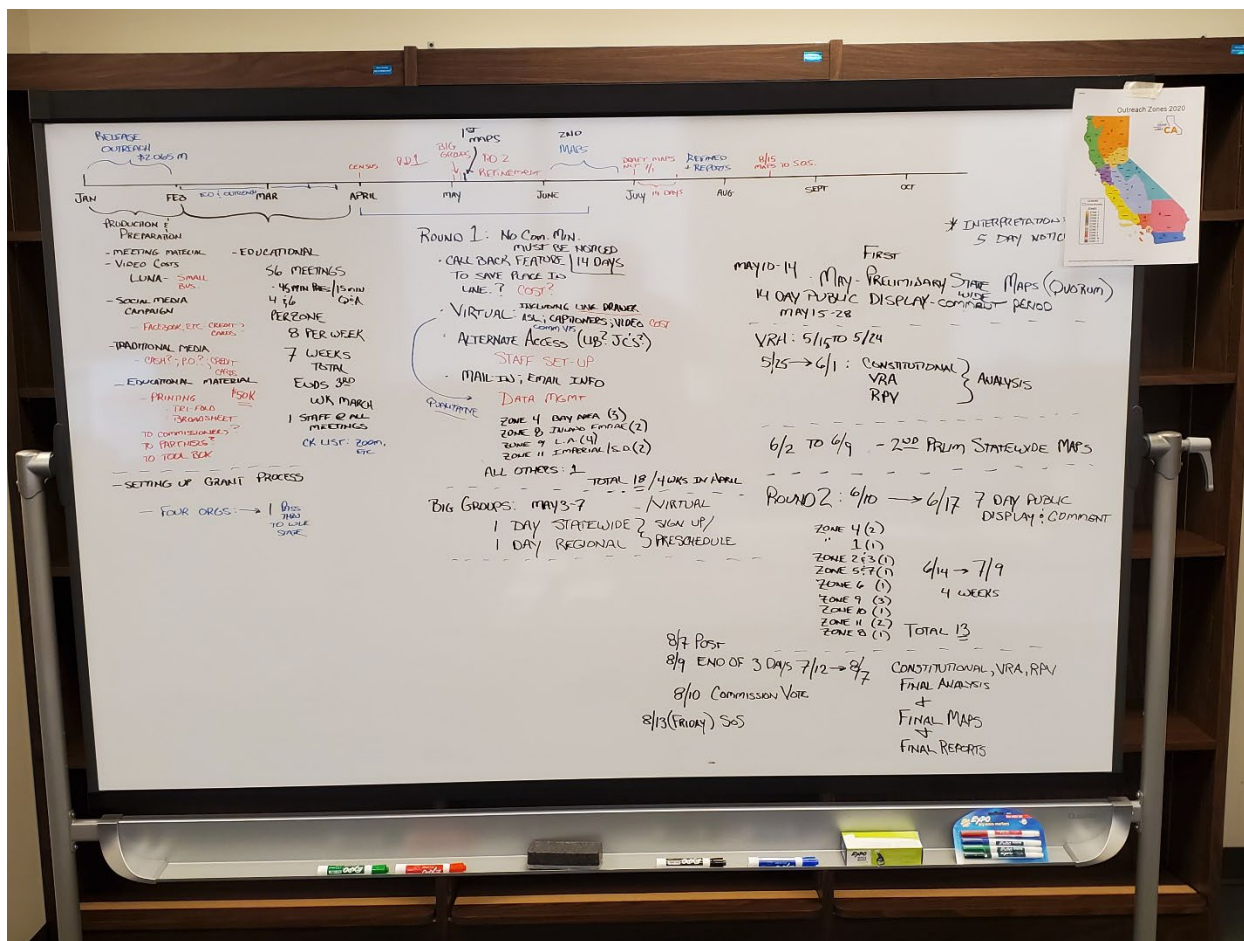 RELEASE
OUTREACH
$2.065 M
CENSUS
RD 1
BIG
GROUPS
1ST
MAPS
RD 2
REFINEMENT
2ND
MAPS
DRAFT MAPS
7/1
14 DAYS
REFINED
+ REPORTS
8/15
MAPS TO SOS.
JAN
FEB
ED & OUTREACH
MAR
APRIL
MAY
JUNE
JULY
AUG
SEPT
OCT
Outreach Zones 2020
CA
PRODUCTION &
PREPARATION
- MEETING MATERIAL
- VIDEO COSTS
LUNA - SMALL
BUS.
- SOCIAL MEDIA
CAMPAIGN
- FACEBOOK, ETC CREDIT
CARDS
- TRADITIONAL MEDIA
- CASH?; P.O.?; CREDIT
CARDS
- EDUCATIONAL MATERIAL
- PRINTING $50K
- TRI-FOLD
BROADSHEET
TO COMMISSIONERS?
TO PARTNERS?
TO TOOL BOX
- SETTING UP GRANT PROCESS
- FOUR ORGS: → 1 PASS
THEN
TO WORK
STATE
- EDUCATIONAL
56 MEETINGS
- 45 MIN PRES/15 MIN
Q & A
4 & 6
PER ZONE
8 PER WEEK
7 WEEKS
TOTAL
ENDS 3RD
WK MARCH
1 STAFF @ ALL
MEETINGS
CK LIST: ZOOM,
ETC
ROUND 1: NO COM. MIN.
MUST BE NOTICED
14 DAYS
· CALL BACK FEATURE
TO SAVE PLACE IN
LINE? COST?
· VIRTUAL: INCLUDING LINE DRAWER
ASL; CAPTIONERS; VIDEO COST
COMM VIS
· ALTERNATE ACCESS (LIB? JC'S?)
STAFF SET-UP
· MAIL-IN; EMAIL INFO
DATA MGMT
QUALITATIVE
ZONE 4 BAY AREA (3)
ZONE 8 INLAND EMPIRE (2)
ZONE 9 L.A. (4)
ZONE 11 IMPERIAL/S.D. (2)
ALL OTHERS: 1
TOTAL 18/4 WKS IN APRIL
BIG GROUPS: MAY 3-7 - /VIRTUAL
1 DAY STATEWIDE } SIGN UP/
1 DAY REGIONAL } PRESCHEDULE
* INTERPRETATION:
5 DAY NOTIC
FIRST
MAY 10-14 · MAY - PRELIMINARY STATE MAPS (QUORUM)
WIDE
14 DAY PUBLIC DISPLAY - COMMENT PERIOD
MAY 15-28
VRA: 5/15 TO 5/24
5/25 → 6/1: CONSTITUTIONAL
VRA
RPV
} ANALYSIS
6/2 TO 6/9 - 2ND PRLIM STATEWIDE MAPS
ROUND 2: 6/10 → 6/17 7 DAY PUBLIC
DISPLAY & COMMENT
ZONE 4 (2)
" 1 (1)
ZONE 2 & 3 (1)
ZONE 5 & 7 (1)
ZONE 6 (1)
ZONE 9 (3)
ZONE 10 (1)
ZONE 11 (2)
ZONE 8 (1)
6/14 → 7/9
4 WEEKS
TOTAL 13
8/7 POST
8/9 END OF 3 DAYS
8/10 COMMISSION VOTE
8/13 (FRIDAY) SOS
7/12 → 8/7 CONSTITUTIONAL, VRA, RPV
FINAL ANALYSIS
+
FINAL MAPS
+
FINAL REPORTS
EXPO
EXPO
EXPO
EXPO
EXPO
EXPO